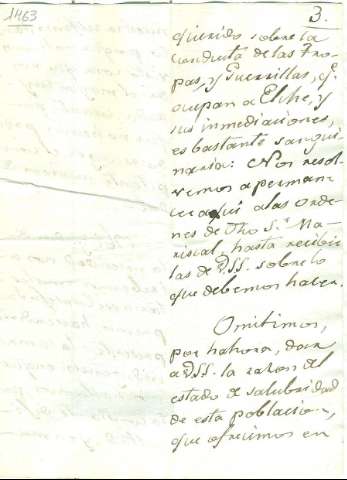 1463
3.
querido sobre la
conducta de las Tro-
pas, y Guerrillas, q.e
ocupan a Elche, y
sus inmediaciones,
es bastante sangui-
naria: Nos resol-
vemos a permane-
cer aqui a las Orde-
nes de dho S.r Ma-
riscal, hasta recibir
las de VSS. sobre lo
que debemos hacer.
Omitimos,
por hahora, dar
a VSS. la razon del
estado de salubridad
de esta poblacion,
que ofrecimos en